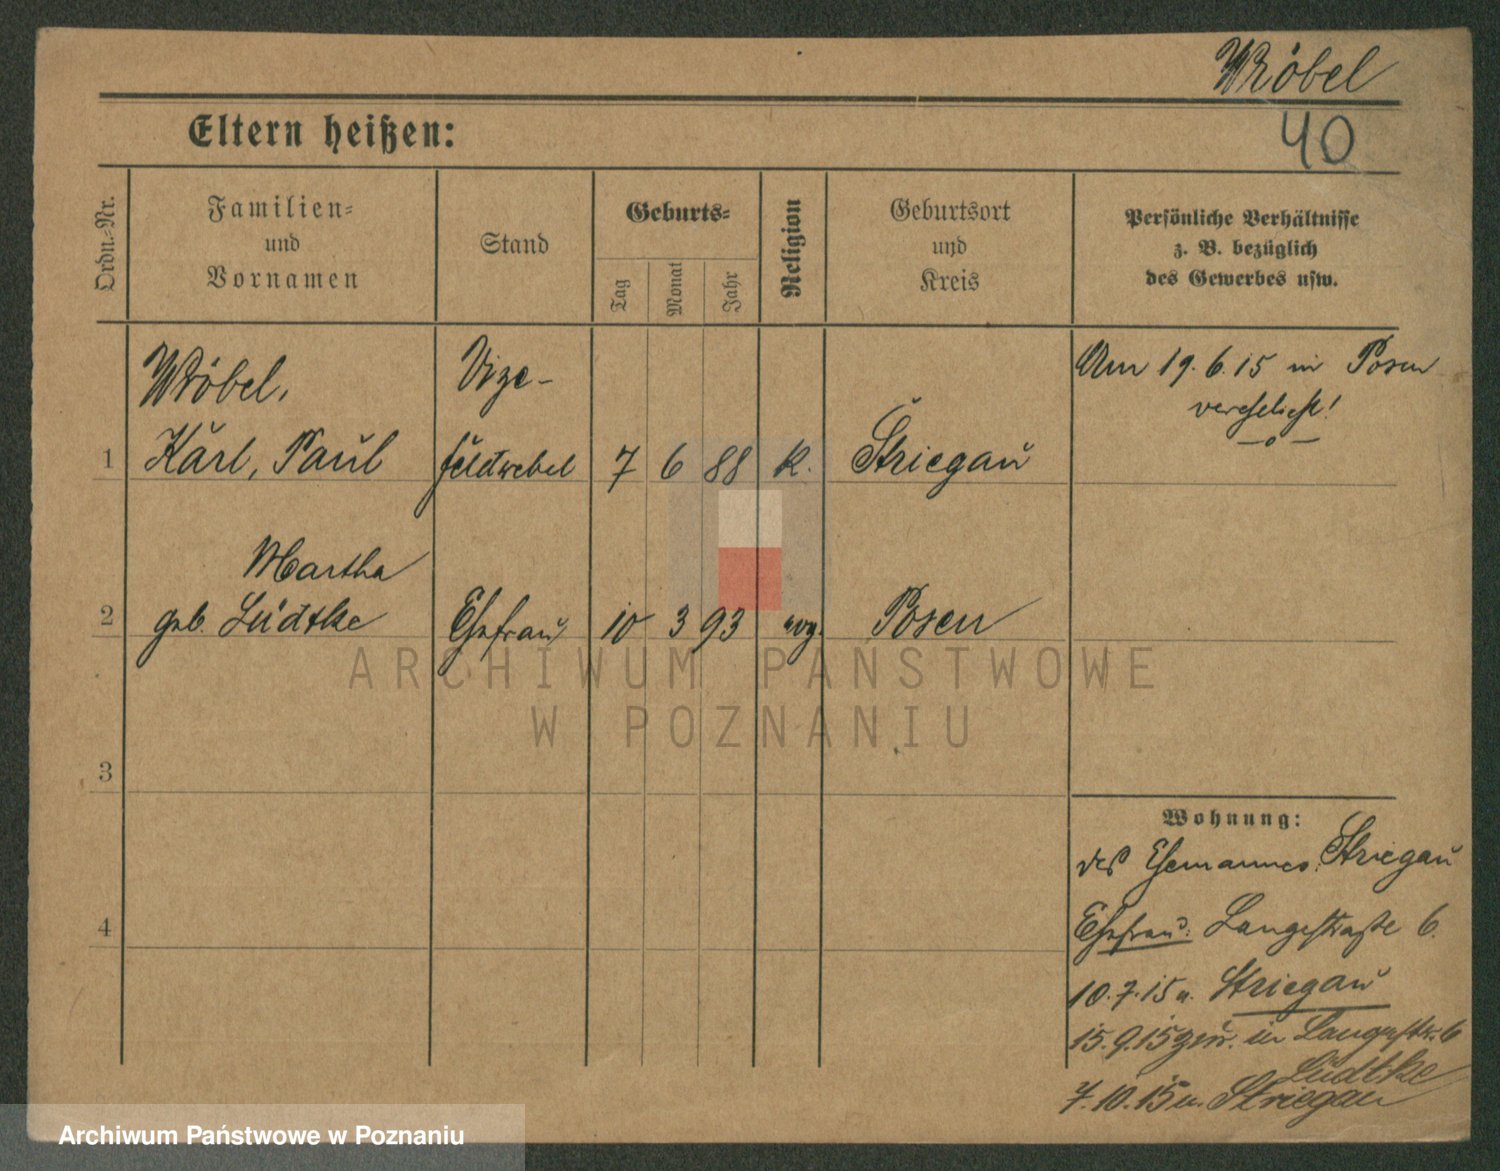 Wröbel
40
Eltern heißen:
Ordn.-Nr.
Familien-
und
Vornamen
Stand
Geburts-
Tag
Monat
Jahr
Religion
Geburtsort
und
Kreis
Persönliche Verhältnisse
z. B. bezüglich
des Gewerbes usw.
Wröbel,
Vize-
Am 19.6.15 in Posen
verehelicht!
1 Karl, Paul feldwebel 7 6 88 k. Striegau
Martha
2 geb. Lüdtke Ehefrau 10 3 93 evg. Posen
3
4
Wohnung:
des Ehemannes: Striegau
Ehefrau: Langestraße 6.
10.7.15 n. Striegau
15.9.15 zur. in Langestr. 6
Lüdtke
7.10.15 n. Striegau
ARCHIWUM PAŃSTWOWE
W POZNANIU
Archiwum Państwowe w Poznaniu